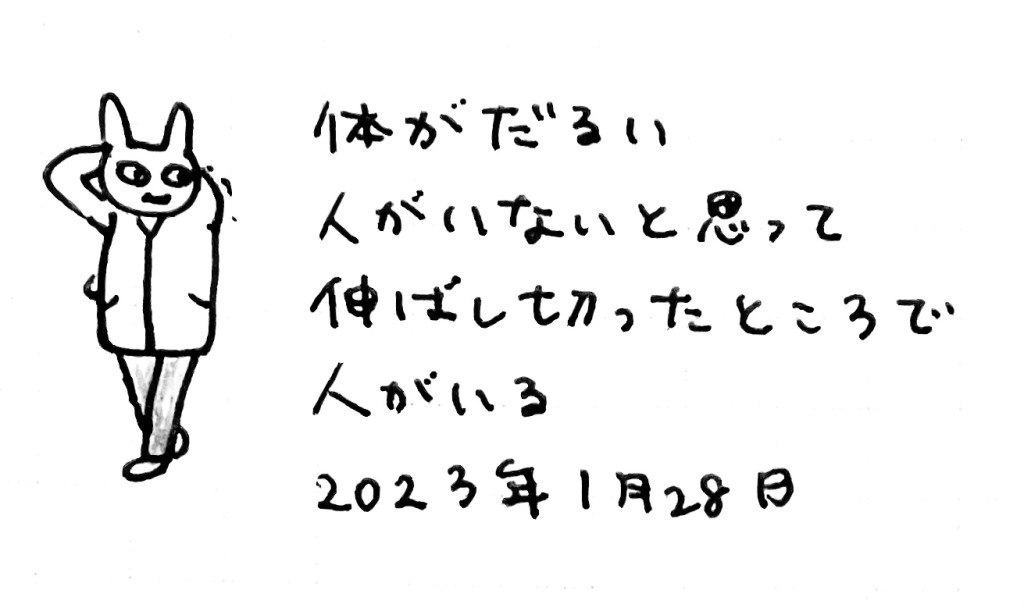 体がだるい
人がいないと思って
伸ばし切ったところで
人がいる
2023年1月28日